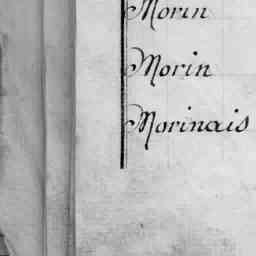 Morin
Morin
Morinais